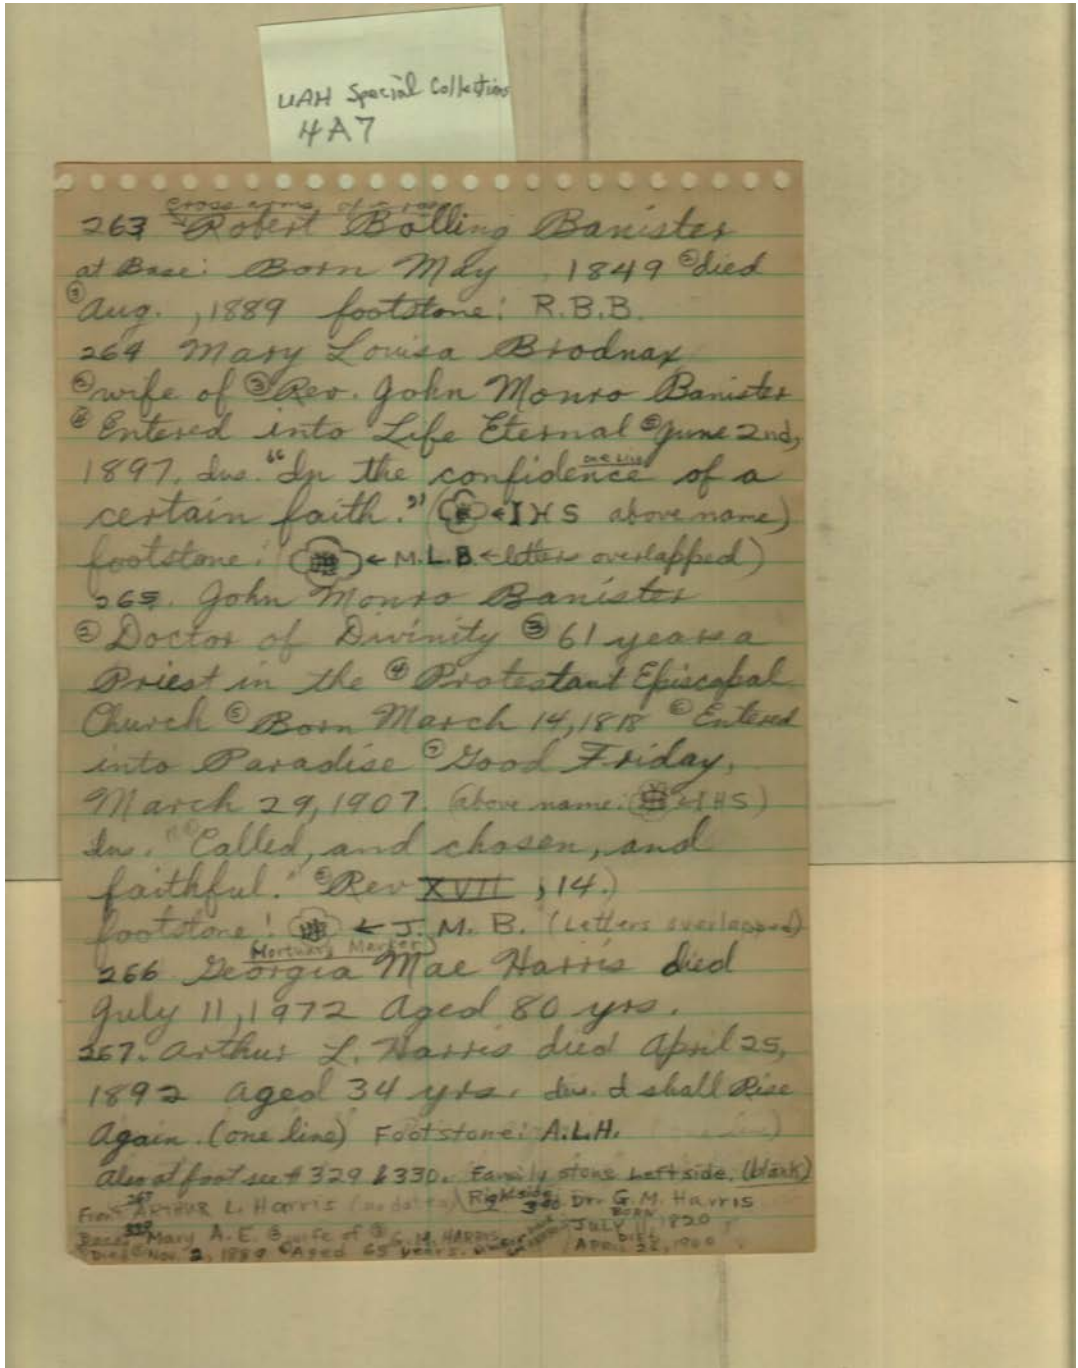 UAH Special Collections
4A7
Cross arms of cross
263 Robert Bolling Banister
at Base: Born May , 1849 ② died
③ Aug. , 1889 footstone: R.B.B.
264 Mary Louisa Brodnax
② wife of ③ Rev. John Monro Banister
④ Entered into Life Eternal ⑤ June 2nd,
one line
1897. Ins. "In the confidence of a
certain faith." ( ← I H S above name)
footstone: ← M.L.B. ← letters overlapped)
265. John Monro Banister
② Doctor of Divinity ③ 61 years a
Priest in the ④ Protestant Episcopal
Church ⑤ Born March 14, 1818 ⑥ Entered
into Paradise ⑦ Good Friday,
March 29, 1907. (above name: ← IHS)
Ins. "Called, and chosen, and
faithful." Rev XVII ; 14.)
footstone: ← J. M. B. (Letters overlapped)
Mortuary Marker
266 Georgia Mae Harris died
July 11, 1972 Aged 80 yrs.
267. Arthur L. Harris died April 25,
1892 aged 34 yrs. Ins. I shall Rise
Again. (one line) Footstone: A.L.H.
Also at foot see # 329 & 330. Family stone Left side. (blank)
Front 267 ARTHUR L. Harris (no data) Right side 330 Dr. G. M. Harris
Base: 329 Mary A. E. ② wife of ③ G. M. HARRIS BORN JULY 11, 1820
Died Nov. 2, 1889 Aged 65 years. DIED APRIL 28, 1900